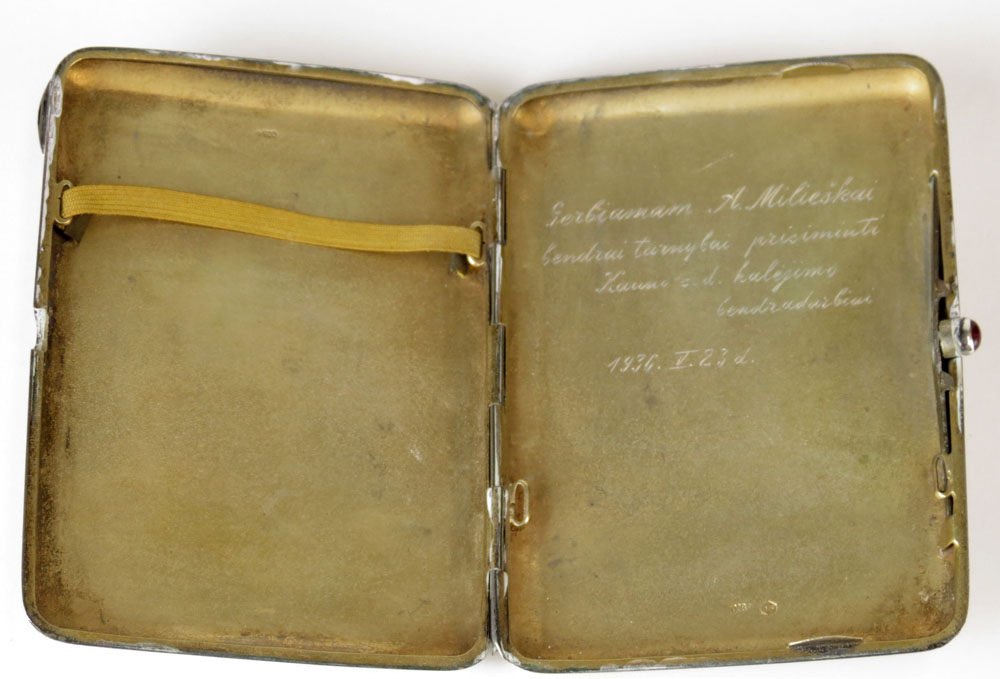 Gerbiamam A. Milieškai
bendrai tarnybai prisiminti
Kauno s.d. kalėjimo
bendradarbiai
1936. V. 23 d.